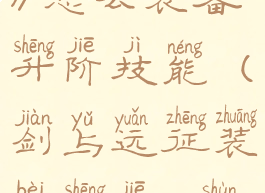 shēng jiē jì néng
升阶技能（
jiàn yǔ yuǎn zhēng zhuāng
剑与远征装
bèi shēng jiē shùn